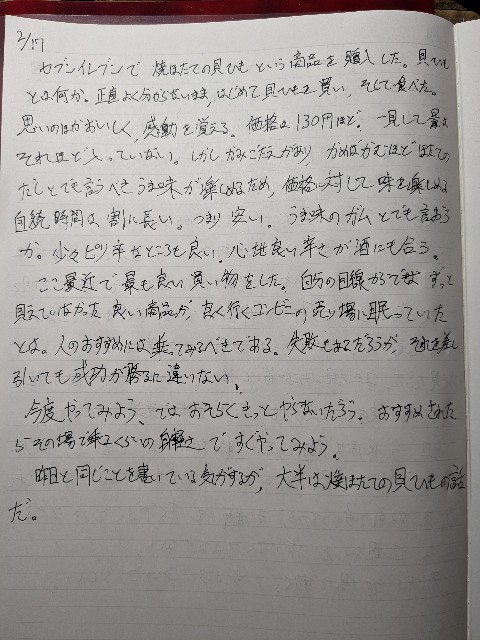 2/17
セブンイレブンで焼ほたての貝ひもという商品を購入した。貝ひも
とは何か。正直よく分からないまま、はじめて貝ひもを買い、そして食べた。
思いのほかおいしく、感動を覚える。価格は130円ほど。一見して量は
それほど入っていない。しかしかみごたえがあり、かめばかむほどほたての
だしとでも言うべきうま味が楽しめるため、価格に対して味を楽しめる
時間は割に長い。つまり安い。うま味のガムとでも言おう
か。少々ピリ辛なところも良い。心地良い辛さが酒にも合う。
ここ最近で最も良い買い物をした。自分の目線からではずっと
見えていなかった良い商品が、良く行くコンビニの売り場に眠っていた
とは。人のおすすめには乗ってみるべきである。失敗もあるだろうが、それを差し
引いても成功が勝るに違いない。
今度やってみよう、ではおそらくきっとやらないだろう。おすすめされた
らその場で乗るくらいの身軽さですぐやってみよう。
昨日と同じことを書いている気がするが、大半は焼ほたての貝ひもの話
だ。